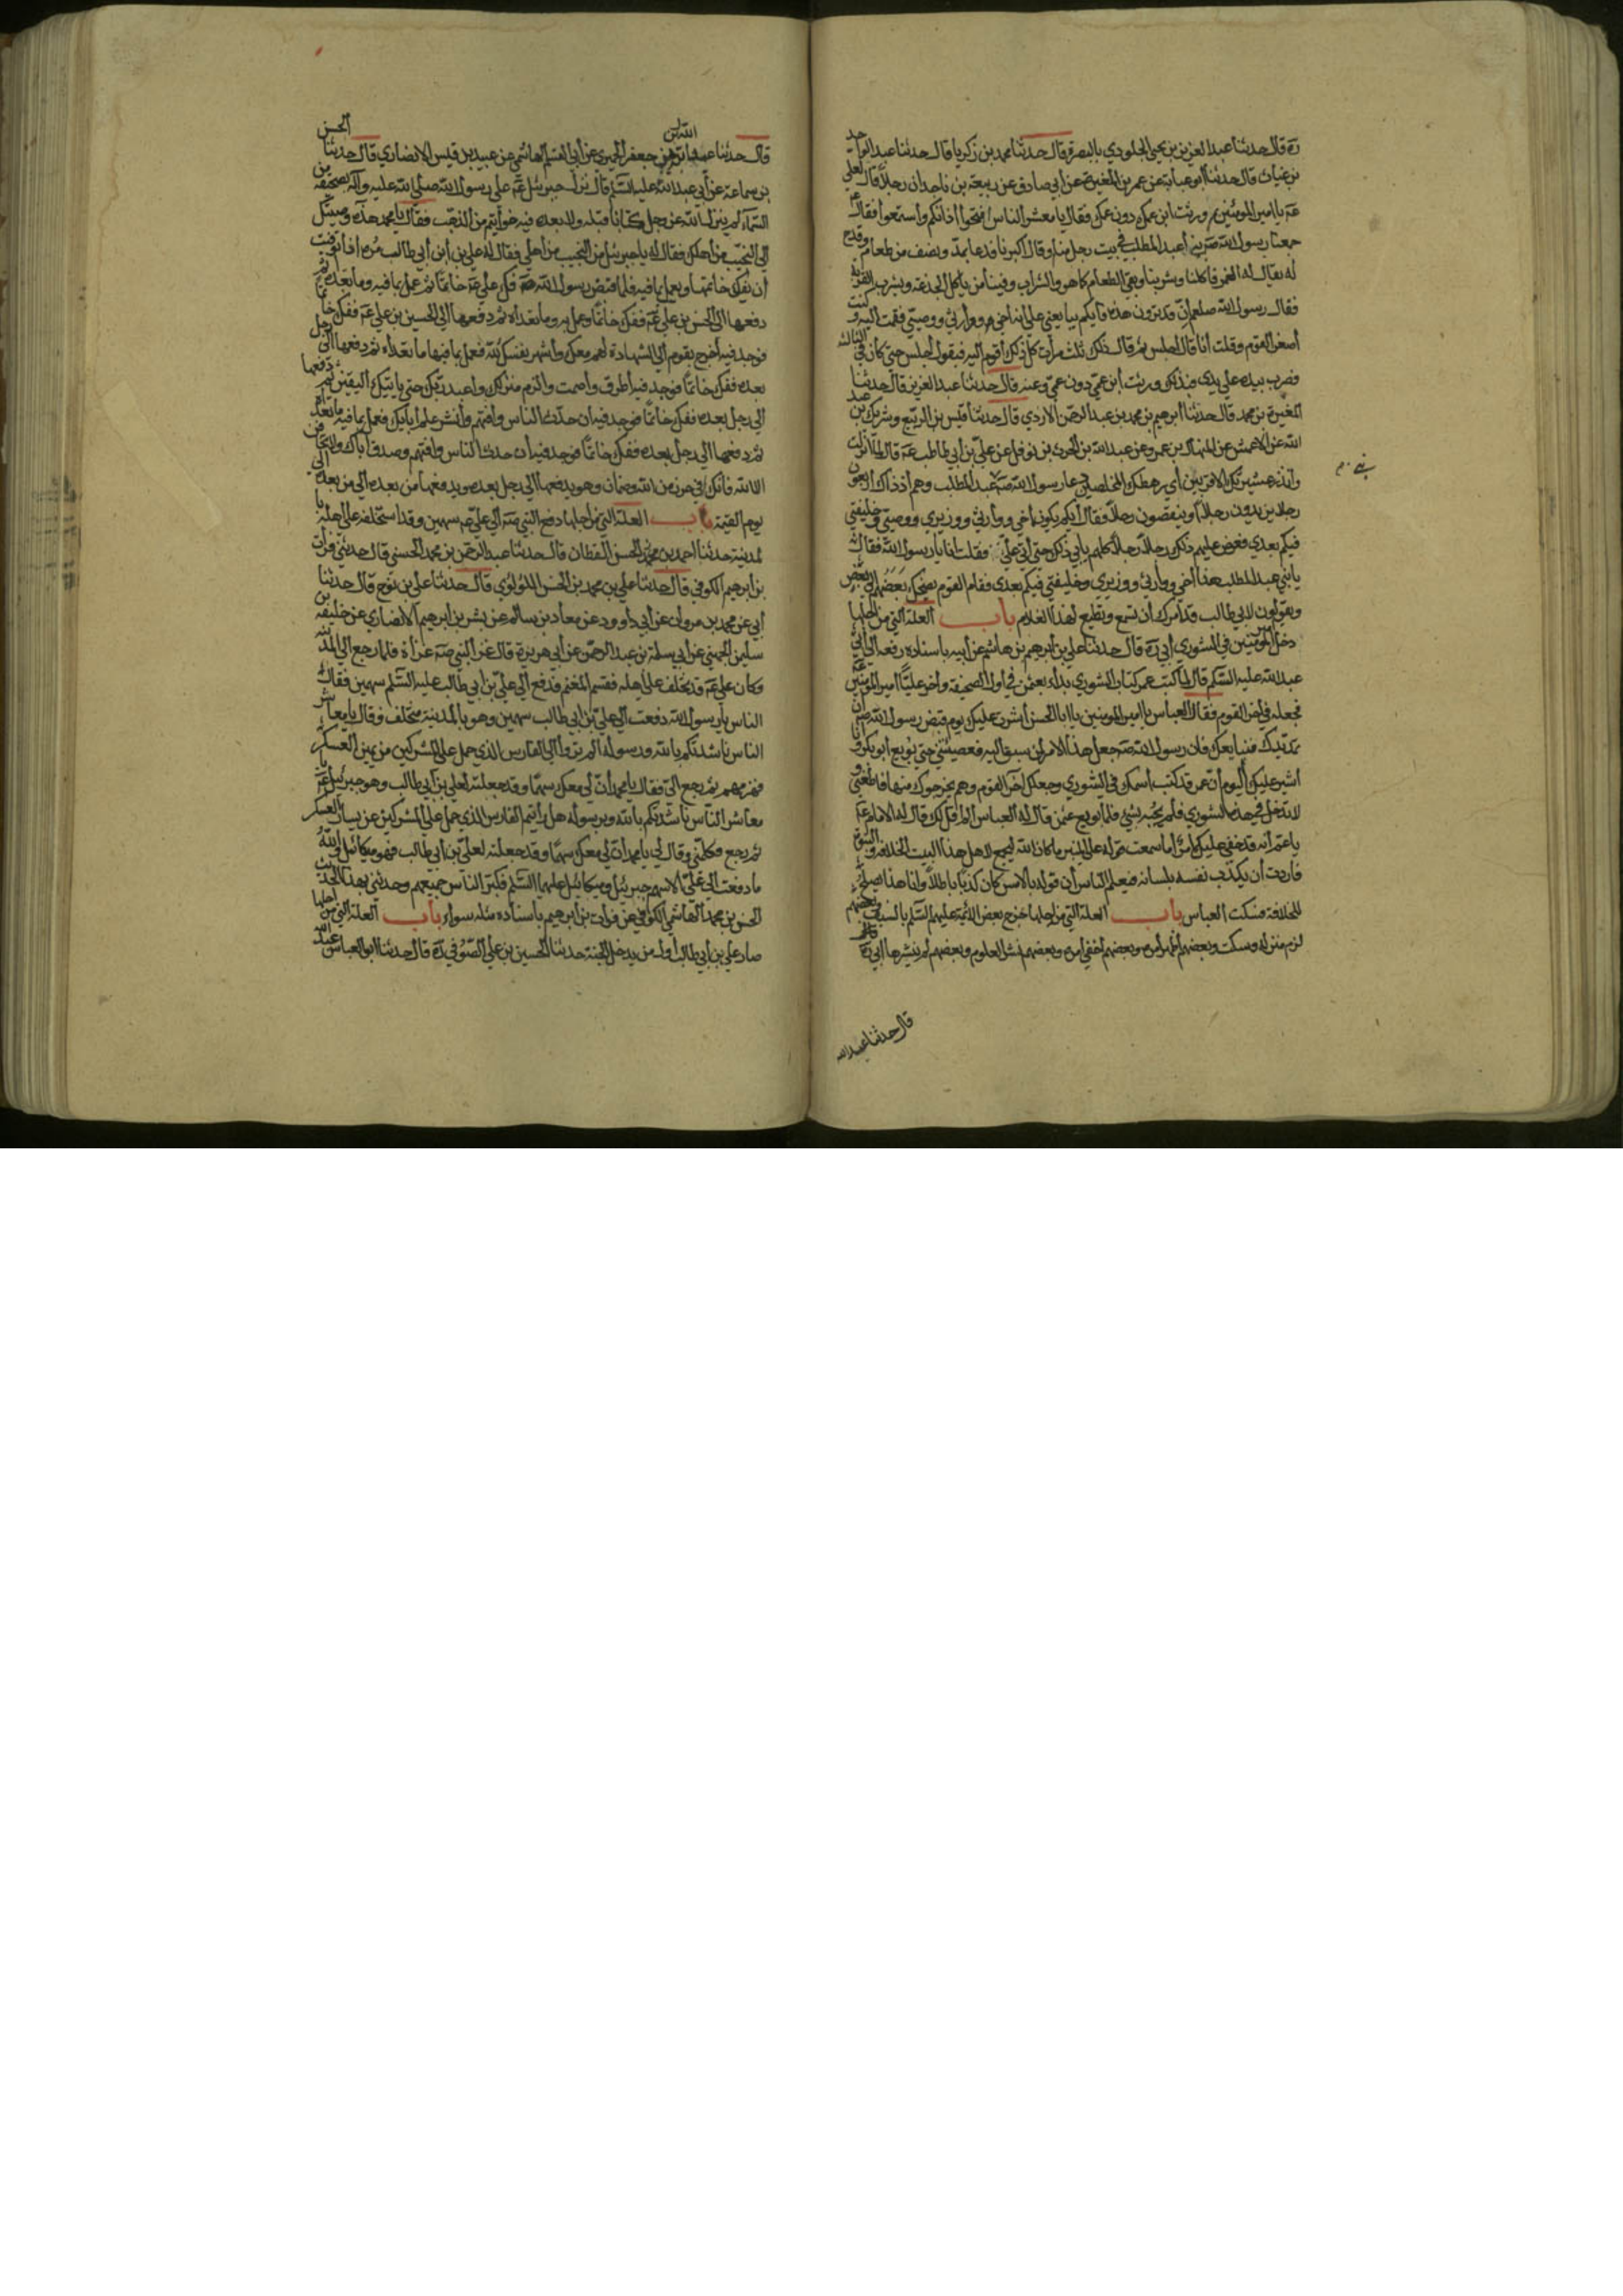 ره قال حدثنا عبد العزيز بن يحيى الجلودي بالبصرة قال حدثنا محمد بن زكريا قال حدثنا عبد الواحد
بن غياث قال حدثنا ابو عباية عن عمر بن المغيرة عن أبي صادق عن ربيعة بن ناجد ان رجلا قال لعلي
عم يا امير المومنين بم ورثت ابن عمك دون عمك فقال يا معشر الناس افتحوا اذانكم واستمعوا فقال عم
جمعنا رسول الله صم بني عبد المطلب في بيت رجل منا وقال اكبرنا فدعا بمد ونصف من طعام وقدح
له يقال له الغمر فاكلنا وشربنا وبقي الطعام كما هو والشراب وفينا من ياكل الجذعة ويشرب الفرق
فقال رسول الله صلعم ان قد ترون هذه فايكم يبايعني على انه اخي ووارثي ووصيي فقمت اليه وكنت
أصغر القوم وقلت أنا قال اجلس ثم قال ذلك ثلث مرات كل ذلك أقوم اليه فيقول اجلس حتى كان في الثالثة
فضرب بيده على يدي فبذلك ورثت ابن عمي دون عمي وعنه قال حدثنا عبد العزيز قال حدثنا
المغيرة بن محمد قال حدثنا ابرهيم بن محمد بن عبد الرحمن الازدي قال حدثنا قيس بن الربيع وشريك بن عبد
الله عن الاعمش عن المنهال بن عمرو عن عبد الله بن الحرث بن نوفل عن علي بن أبي طالب عم قال لما نزلت
وانذر عشيرتك الاقربين أي رهطك المخلصين دعا رسول الله صم بني عبد المطلب وهم اذ ذاك اربعون
رجلا يزيدون رجلا أو ينقصون رجلا فقال أيكم يكون اخي ووارثي ووزيري ووصيي وخليفتي
فيكم بعدي فعرض عليهم ذلك رجلا رجلا كلهم يابى ذلك حتى أتى علي فقلت انا يا رسول الله فقال
يا بني عبد المطلب هذا أخي ووارثي ووزيري وخليفتي فيكم بعدي فقام القوم يضحك بعضهم الى بعض
ويقولون لابي طالب قد أمرك أن تسمع وتطيع لهذا الغلام باب العلة التي من اجلها
دخل أمير المومنين في الشوري أبي ره قال حدثنا علي بن ابرهيم بن هاشم عن أبيه باسناده رفعه الى أبي
عبد الله عليه السلم قال لما كتب عمر كتاب الشوري بدأ بعثمن في اول الصحيفة وأخر عليا امير المومنين عم
فجعله في اخر القوم فقال العباس يا امير المومنين يا ابا الحسن أشرت عليك يوم قبض رسول الله صم ان
تمد يدك فنبايعك فان رسول الله صم جعل هذا الامر لمن سبق اليه فعصيتني حتى بويع ابو بكر وانا
أشير عليك اليوم أن عمر قد كتب اسمك في الشوري وجعلك اخر القوم وهم يخرجوك منها فاطعني و
لا تدخل في هذه الشوري فلم يجبه بشي فلما بويع عثمن قال له العباس الم أقل لك قال له الامام عم
يا عم أنه قد خفي عليك أمر أما سمعت قوله على المنبر ما كان الله ليجمع لاهل هذا البيت الخلافة والنبوة
فأردت أن يكذب نفسه بلسانه فيعلم الناس أن قوله بالامس كان كذبا باطلا وانا هذا نصلح
للخلافة فسكت العباس باب العلة التي من اجلها خرج بعض الائمة عليهم السلم بالسيف وبعضهم
لزم منزله وسكت وبعضهم أظهر أمره وبعضهم أخفى امره وبعضهم نشر العلوم وبعضهم لم ينشرها أبي ره
قال حدثنا عبد الله
قال حدثنا عبد الله بن جعفر الحميري عن أبي القسم الهاشمي عن عبيد بن قيس الانصاري قال حدثنا الحسن
بن سماعة عن أبي عبد الله عليه السلم قال نزل جبرئيل عم على رسول الله صلى الله عليه وآله بصحيفة من
السماء لم ينزل الله عز وجل كتابا قبله ولا بعده فيه خواتيم من الذهب فقال يا محمد هذه وصيتك
الى النجيب من أهلك فقال له يا جبرئيل من النجيب من أهلي فقال له علي بن أبي طالب مره اذا توفيت
أن يفك خاتمها ويعمل بما فيه فلما قبض رسول الله صم فك علي عم خاتما ثم عمل بما فيه وما تعداه ثم
دفعها الى الحسن بن علي عم ففك خاتما وعمل به وما تعداه ثم دفعها الى الحسين بن علي عم ففك خاتما
فوجد فيه أخرج بقوم الى الشهادة لهم معك واشهر نفسك لله فعمل بما فيها ما تعداه ثم دفعها الى رجل
بعده ففك خاتما فوجد فيه اطرق واصمت والزم منزلك واعبد ربك حتى ياتيك اليقين ثم دفعها
الى رجل بعده ففك خاتما فوجد فيه ان حدث الناس وافتهم وانشر علم ابايك فعمل بما فيه ما تعداه
ثم دفعها الى رجل بعده ففك خاتما فوجد فيه أن حدث الناس وافتهم وصدق أباك ولا تخافن
الا الله فانك في حرز من الله وضمان وهو يدفعها الى رجل بعده ويدفعها من بعده الى من بعده الى
يوم القيمة باب العلة التي من أجلها دفع النبي صم الى علي عم سهمين وقد استخلفه على اهله با
لمدينة حدثنا احمد بن محمد الحسن القطان قال حدثنا عبد الرحمن بن محمد الحسني قال حدثني فرات
بن ابرهيم الكوفي قال حدثنا علي بن محمد بن الحسن اللؤلؤي قال حدثنا علي بن نوح قال حدثنا
أبي عن محمد بن مروان عن أبي داوود عن معاد بن سالم عن بشر بن ابرهيم الانصاري عن خليفة بن
سليمن الجهيني عن أبي سلمة بن عبد الرحمن عن أبي هريرة قال غزا النبي صم غزاة فلما رجع الى المدينة
وكان علي عم قد تخلف على أهله فقسم المغنم فدفع الى علي بن أبي طالب عليه السلم سهمين فقال
الناس يا رسول الله دفعت الى علي بن أبي طالب سهمين وهو بالمدينة متخلف وقال يا معاشر
الناس ناشدتكم بالله ورسوله ألم تروا الى الفارس الذي حمل على المشركين من يمين العسكر
فهزمهم ثم رجع الي فقال يا محمد أن لي معك سهما وقد جعلته لعلي بن أبي طالب وهو جبرئيل عم يا
معاشر الناس ناشدتكم بالله وبرسوله هل رأيتم الفارس الذي حمل على المشركين عن يسار العسكر
ثم رجع فكلمني وقال لي يا محمد أن لي معك سهما وقد جعلته لعلي بن أبي طالب فهو ميكائيل والله
ما دفعت الى علي الا سهم جبرئيل وميكائيل عليهما السلم فكبر الناس جميعهم وحدثني بهذا الحديث
الحسن بن محمد الهاشمي الكوفي عن فرات بن ابرهيم باسناده مثله سواء باب العلة التي من اجلها
صار علي بن أبي طالب أول من يدخل الجنة حدثنا الحسين بن علي الصوفي ره قال حدثنا ابو العباس عبد الله